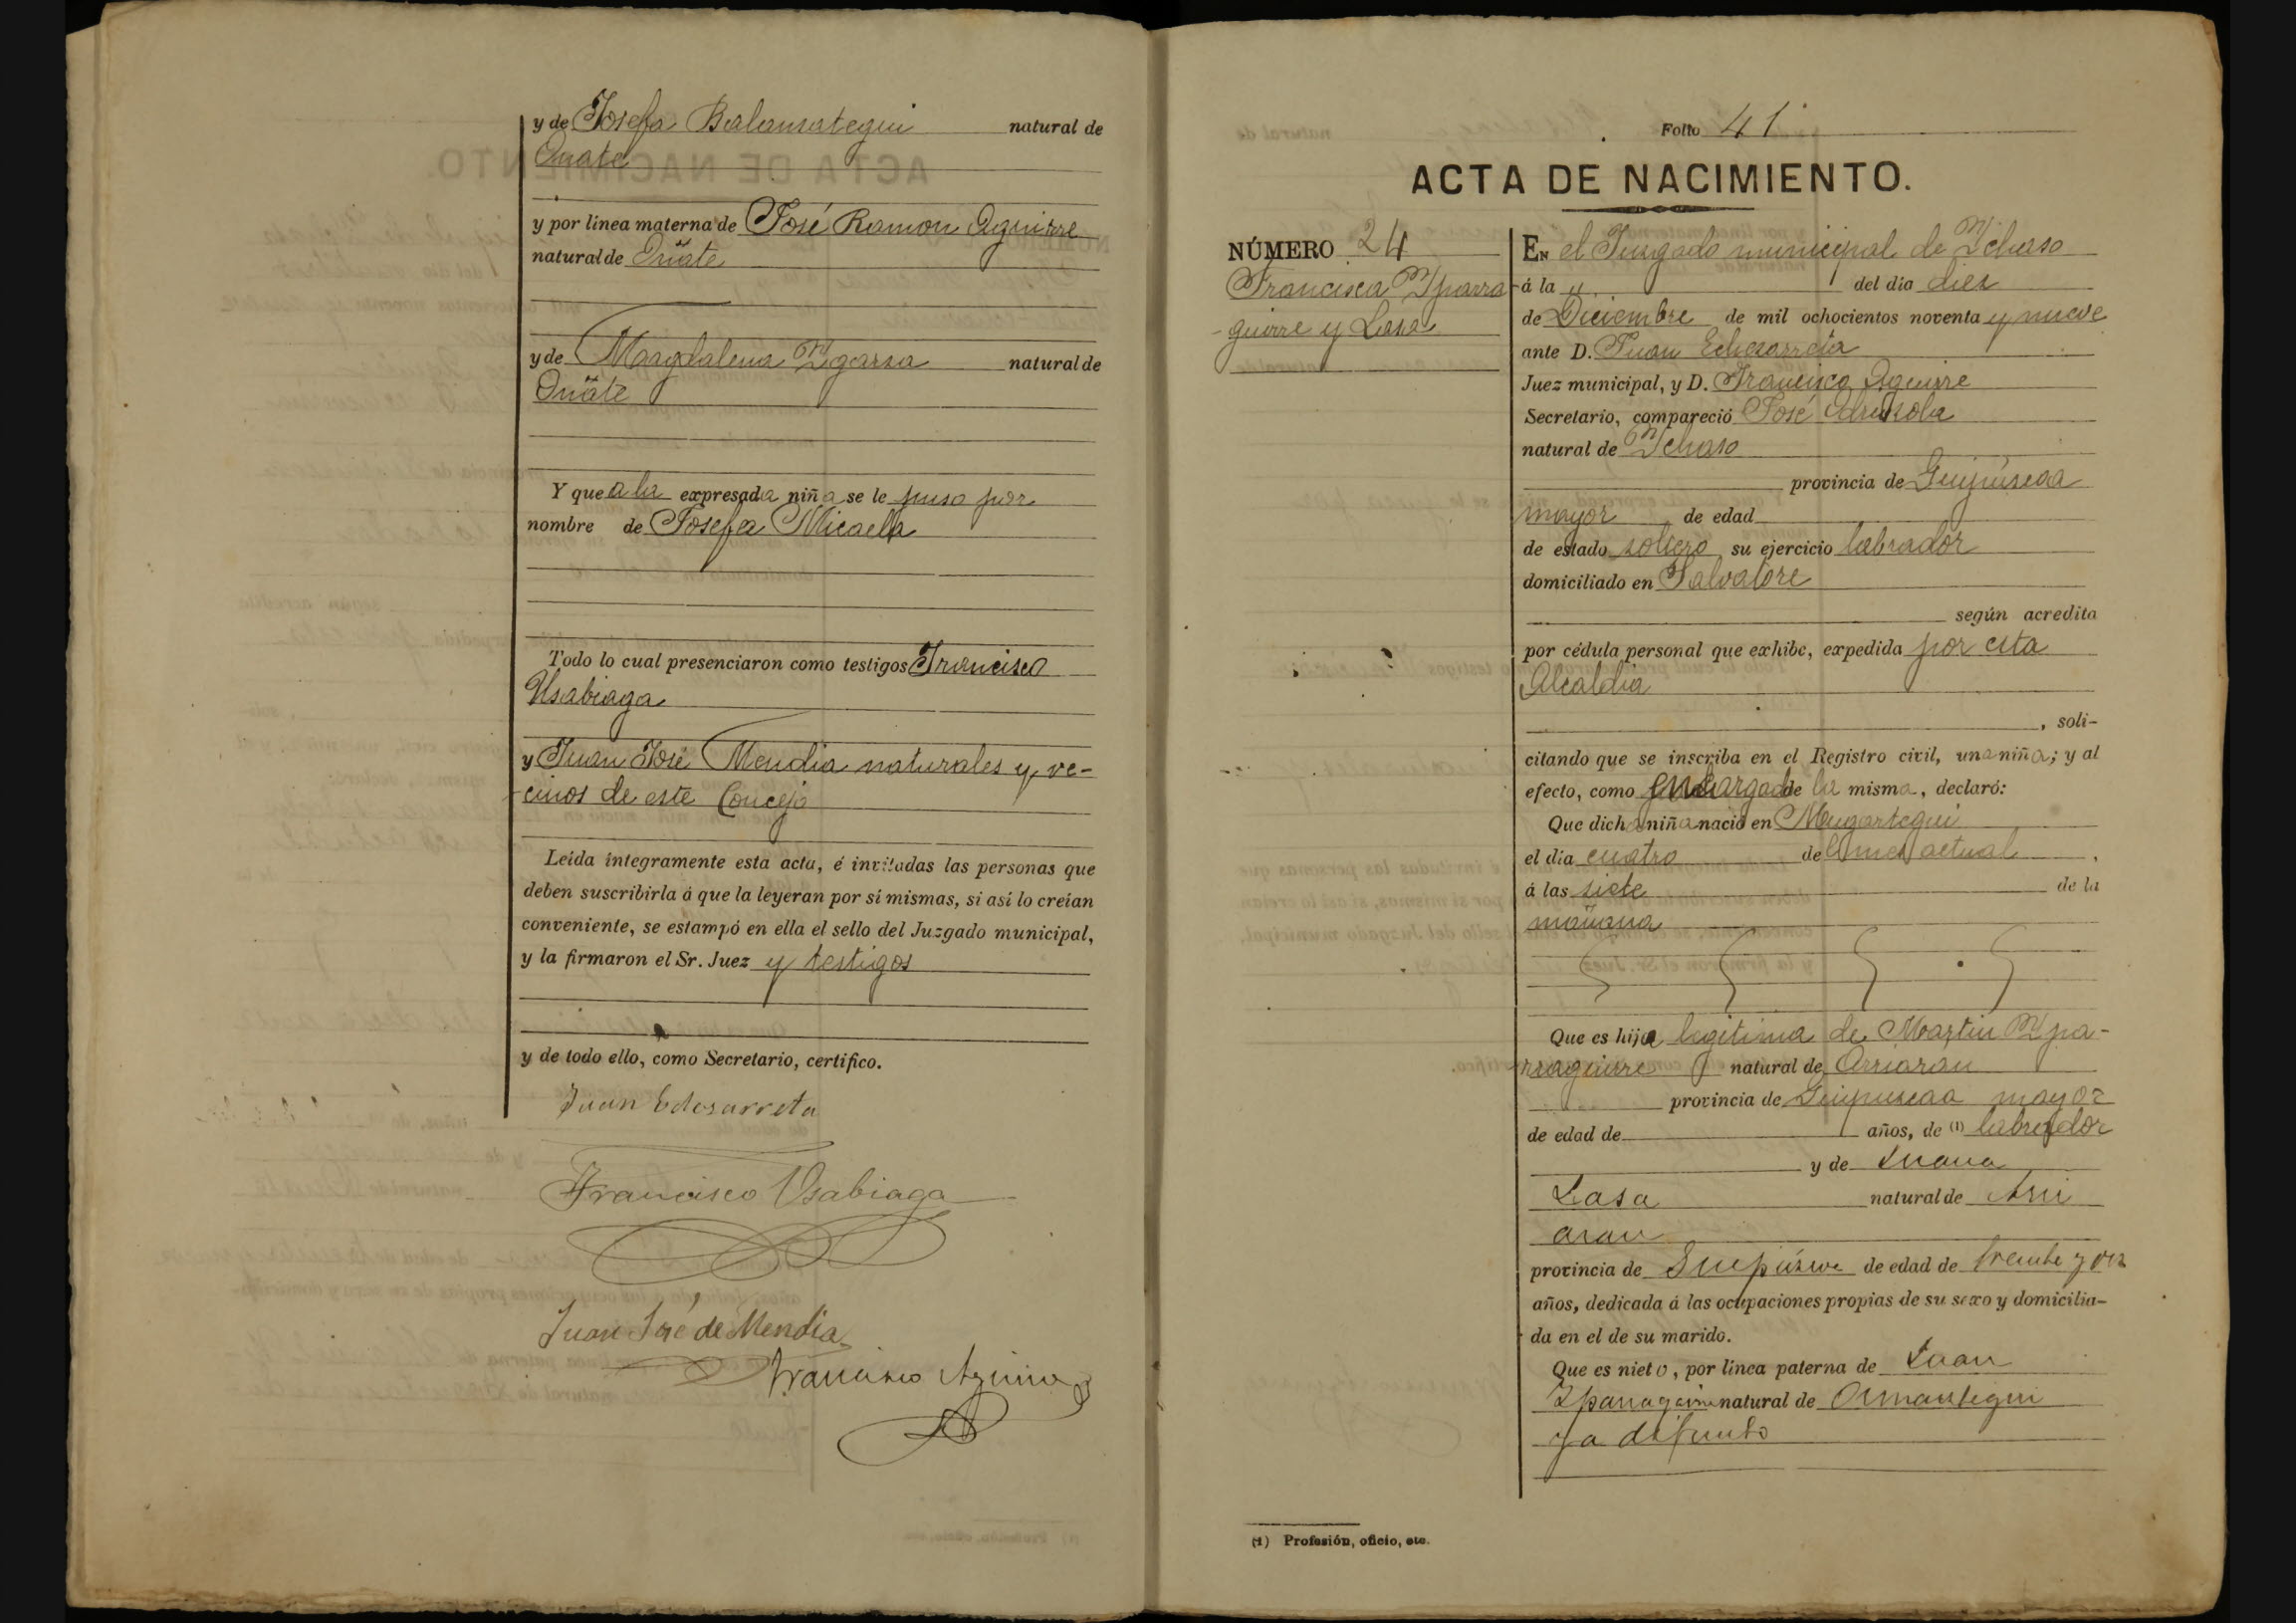 y de Josefa Balansategui natural de
Oñate
y por línea materna de José Ramon Aguirre
natural de Oñate
y de Magdalena Ygarza natural de
Oñate
Y que a la expresada niña se le puso por
nombre de Josefa Micaela
Todo lo cual presenciaron como testigos Francisco
Usabiaga
y Juan José Mendia naturales y ve-
cinos de este Concejo
Leída íntegramente esta acta, é invitadas las personas que
deben suscribirla á que la leyeran por sí mismas, si así lo creían
conveniente, se estampó en ella el sello del Juzgado municipal,
y la firmaron el Sr. Juez y testigos
y de todo ello, como Secretario, certifico.
Juan Echezarreta
Francisco Usabiaga
Juan José de Mendia
Francisco Aguirre
Folio 41
ACTA DE NACIMIENTO.
NÚMERO 24
Francisca Yparra
-guirre y Lasa
En el Juzgado municipal de Ychaso
á la del día diez
de Diciembre de mil ochocientos noventa y nueve
ante D. Juan Echezarreta
Juez municipal, y D. Francisco Aguirre
Secretario, compareció José
natural de Ychaso
provincia de Guipúzcoa
mayor de edad
de estado soltero su ejercicio labrador
domiciliado en Salvatore
según acredita
por cédula personal que exhibe, expedida por esta
Alcaldia
, soli-
citando que se inscriba en el Registro civil, una niña; y al
efecto, como encargado de la misma, declaró:
Que dicha niña nació en Mugartegui
el día cuatro del mes actual
á las siete de la
mañana
Que es hija legitima de Martin Ypa-
rraguirre natural de Arriaran
provincia de Guipuzcoa mayor
de edad de años, de (1) labrador
y de Juana
Lasa natural de Arri
aran
provincia de Guipúzcoa de edad de treinta y
años, dedicada á las ocupaciones propias de su sexo y domicilia-
da en el de su marido.
Que es nieto, por línea paterna de Juan
Yparraguirre natural de Ormaiztegui
ya difunto
(1) Profesión, oficio, etc.